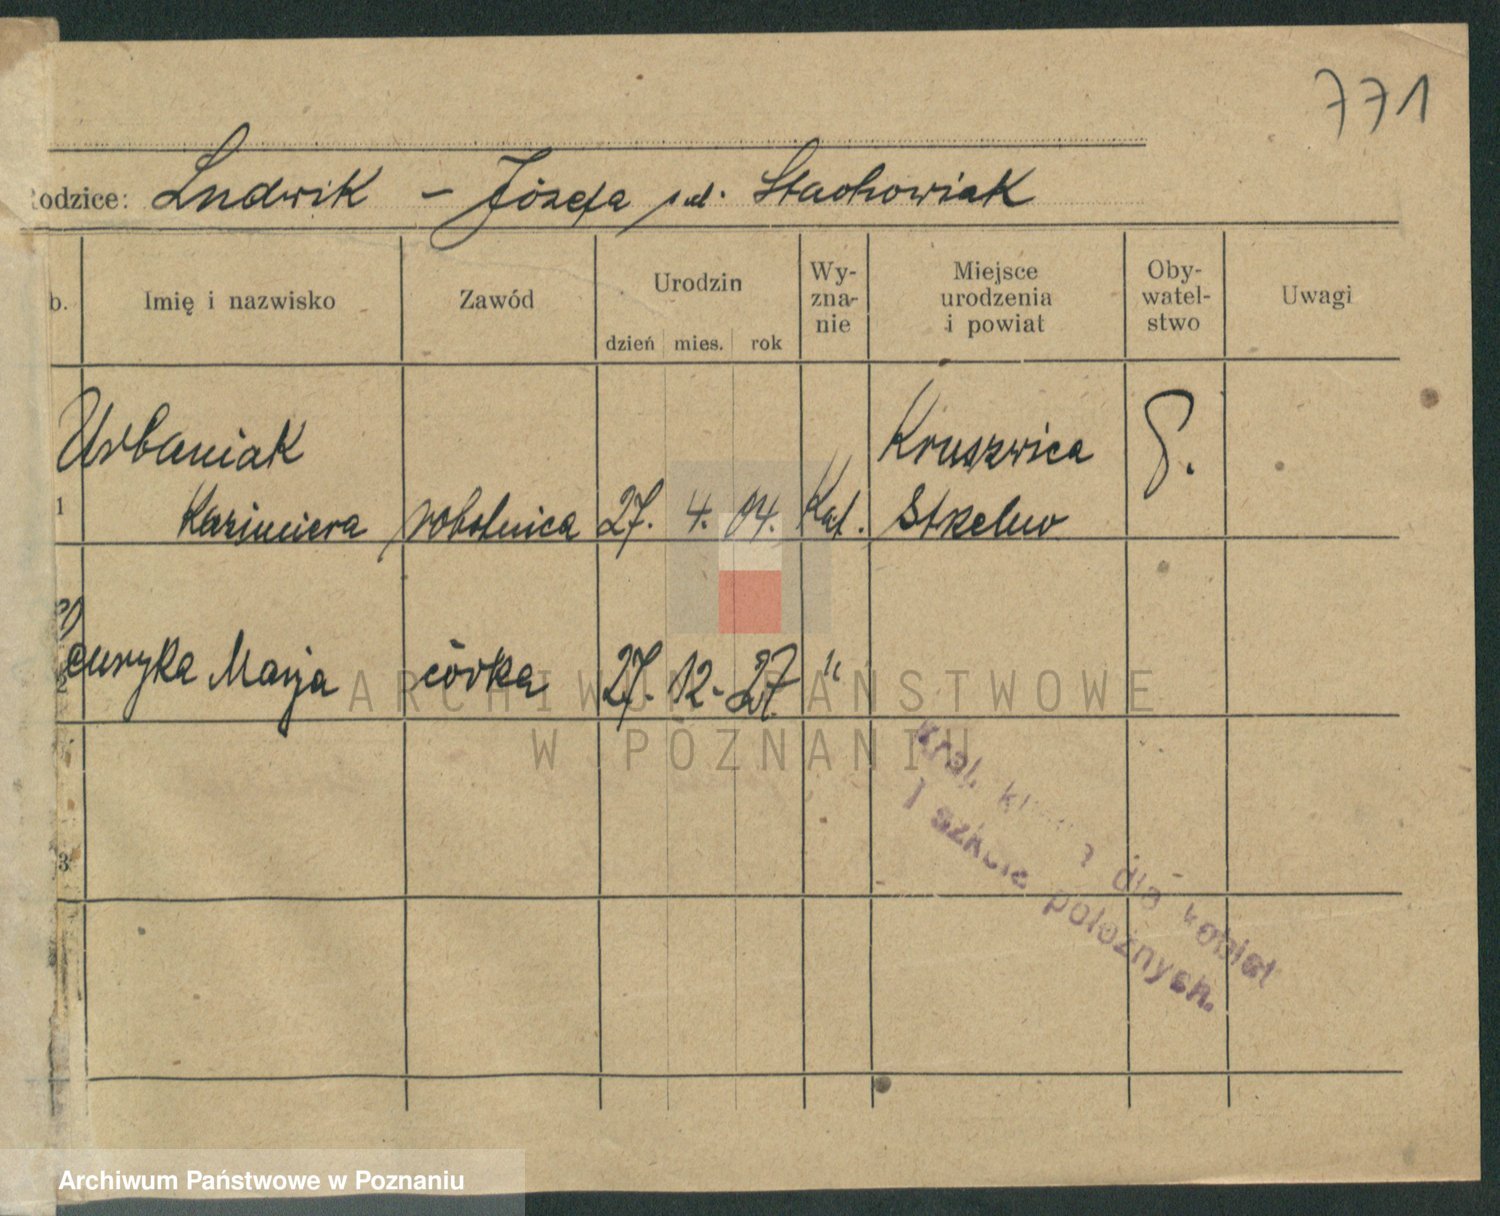 771
Rodzice: Ludwik – Józefa z d. Stachowiak
b. Imię i nazwisko Zawód Urodzin dzień mies. rok Wy-zna-nie Miejsce urodzenia i powiat Oby-watel-stwo Uwagi
Urbaniak Kruszwica P.
1 Kazimiera robotnica 27. 4. 04. Kat. Strzelno
2)
Maria córka 27. 12. 27 "
3
Kraj. klinika dla kobiet
i szkoła położnych.
ARCHIWUM PAŃSTWOWE
W POZNANIU
Archiwum Państwowe w Poznaniu